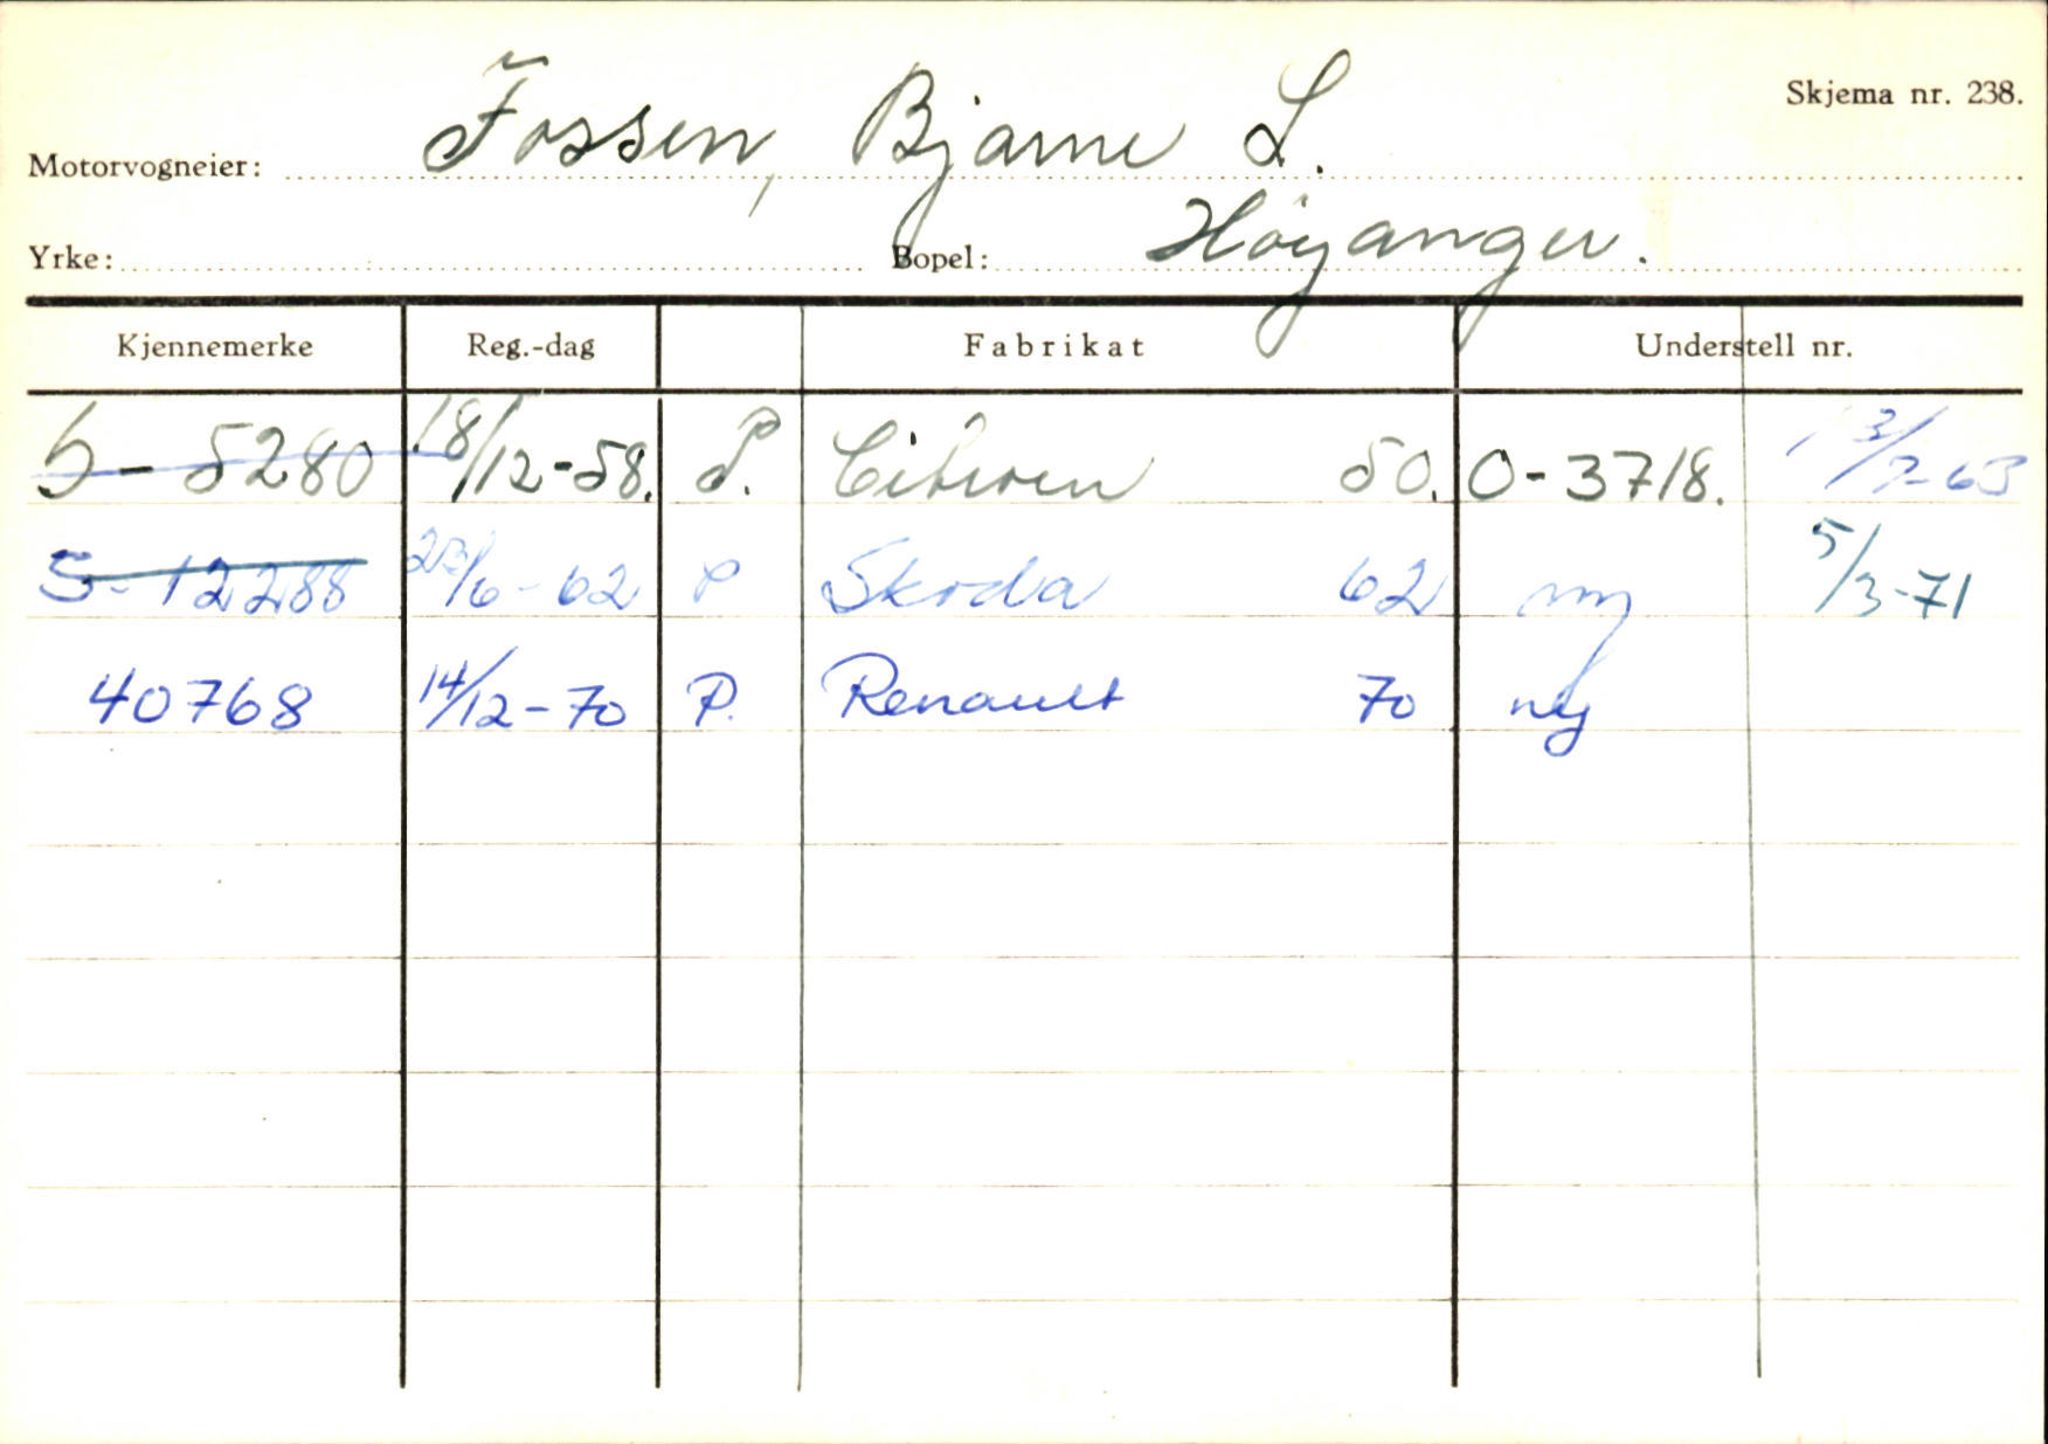 Skjema nr. 238.
Motorvogneier: Fossen, Bjarne L.
Yrke: Bopel: Höyanger.
Kjennemerke Reg.-dag Fabrikat Understell nr.
S-5280 18/12-58. P. Citroen 50. O-3718. 13/7-63
S-12288 23/6-62 P Skoda 62 ny 5/3-71
40768 14/12-70 P. Renault 70 ny